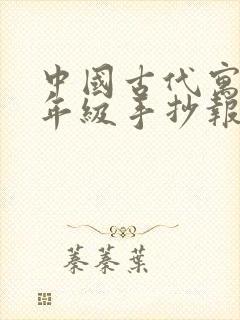 中國古代寓
年級手抄報
蓁蓁葉